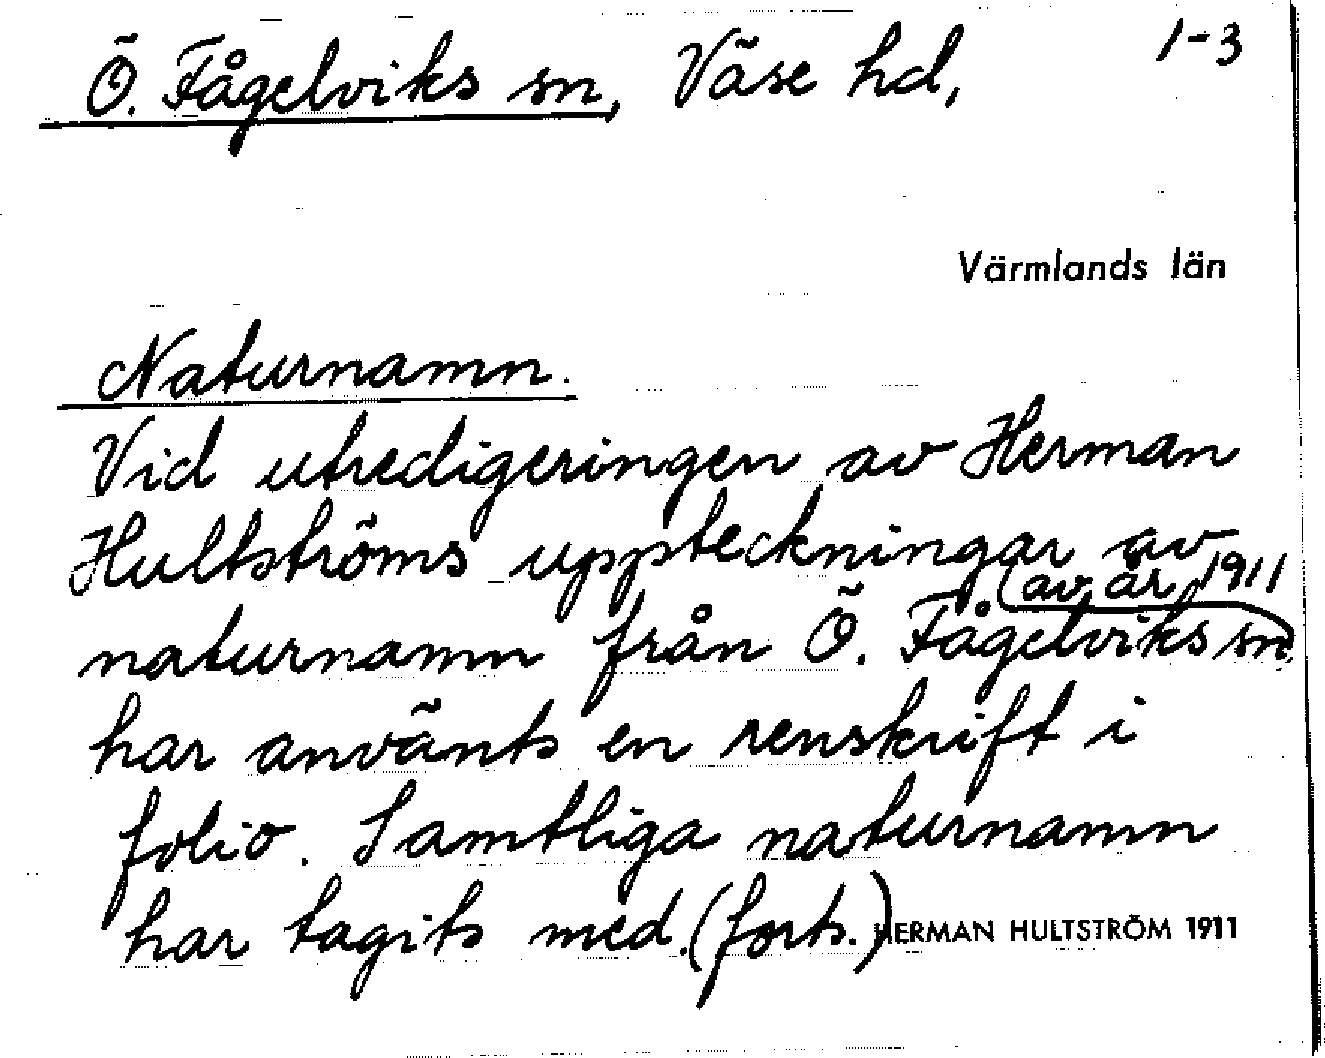 Ö. Fågelviks sn, Väse hd, 1-3
Värmlands län
Naturnamn.
Vid utredigeringen av Herman
Hultströms uppteckningar av
(av år 1911
naturnamn från Ö. Fågelviks sn)
har använts en renskrift i
folio. Samtliga naturnamn
har tagits med. (forts.) HERMAN HULTSTRÖM 1911